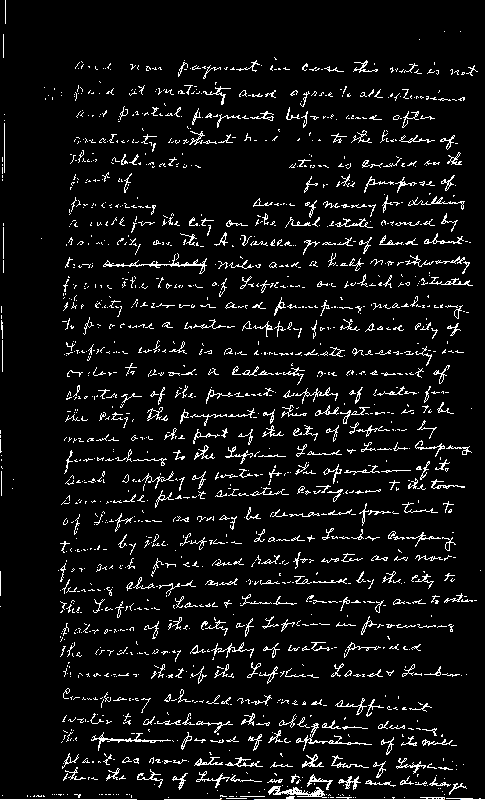 and non payment in case this note is not
paid at maturity and agree to all extensions
and partial payments before and after
maturity without to the holder of
this obligation ation is created on the
part of for the purpose of
procuring sum of money for drilling
a well for the City on the real estate owned by
said City on the A. Varilla grant of land about
two and a half miles and a half northwardly
from the town of Lufkin on which is situated
the City reservoir and pumping machinery
to procure a water supply for the said City of
Lufkin which is an immediate necessity in
order to avoid a calamity on account of
shortage of the present supply of water for
the City, the payment of this obligation is to be
made on the part of the City of Lufkin by
furnishing to the Lufkin Land & Lumber Company
such supply of water for the operation of its
saw mill plant situated contiguous to the town
of Lufkin as may be demanded from time to
time by the Lufkin Land & Lumber Company
for such price and rate for water as is now
being charged and maintained by the City to
the Lufkin Land & Lumber Company and to other
patrons of the City of Lufkin in procuring
the ordinary supply of water provided
however that if the Lufkin Land & Lumber
Company should not need sufficient
water to discharge this obligation during
the operation period of the operation of its mill
plant as now situated in the town of Lufkin
then the City of Lufkin is to pay off and discharge